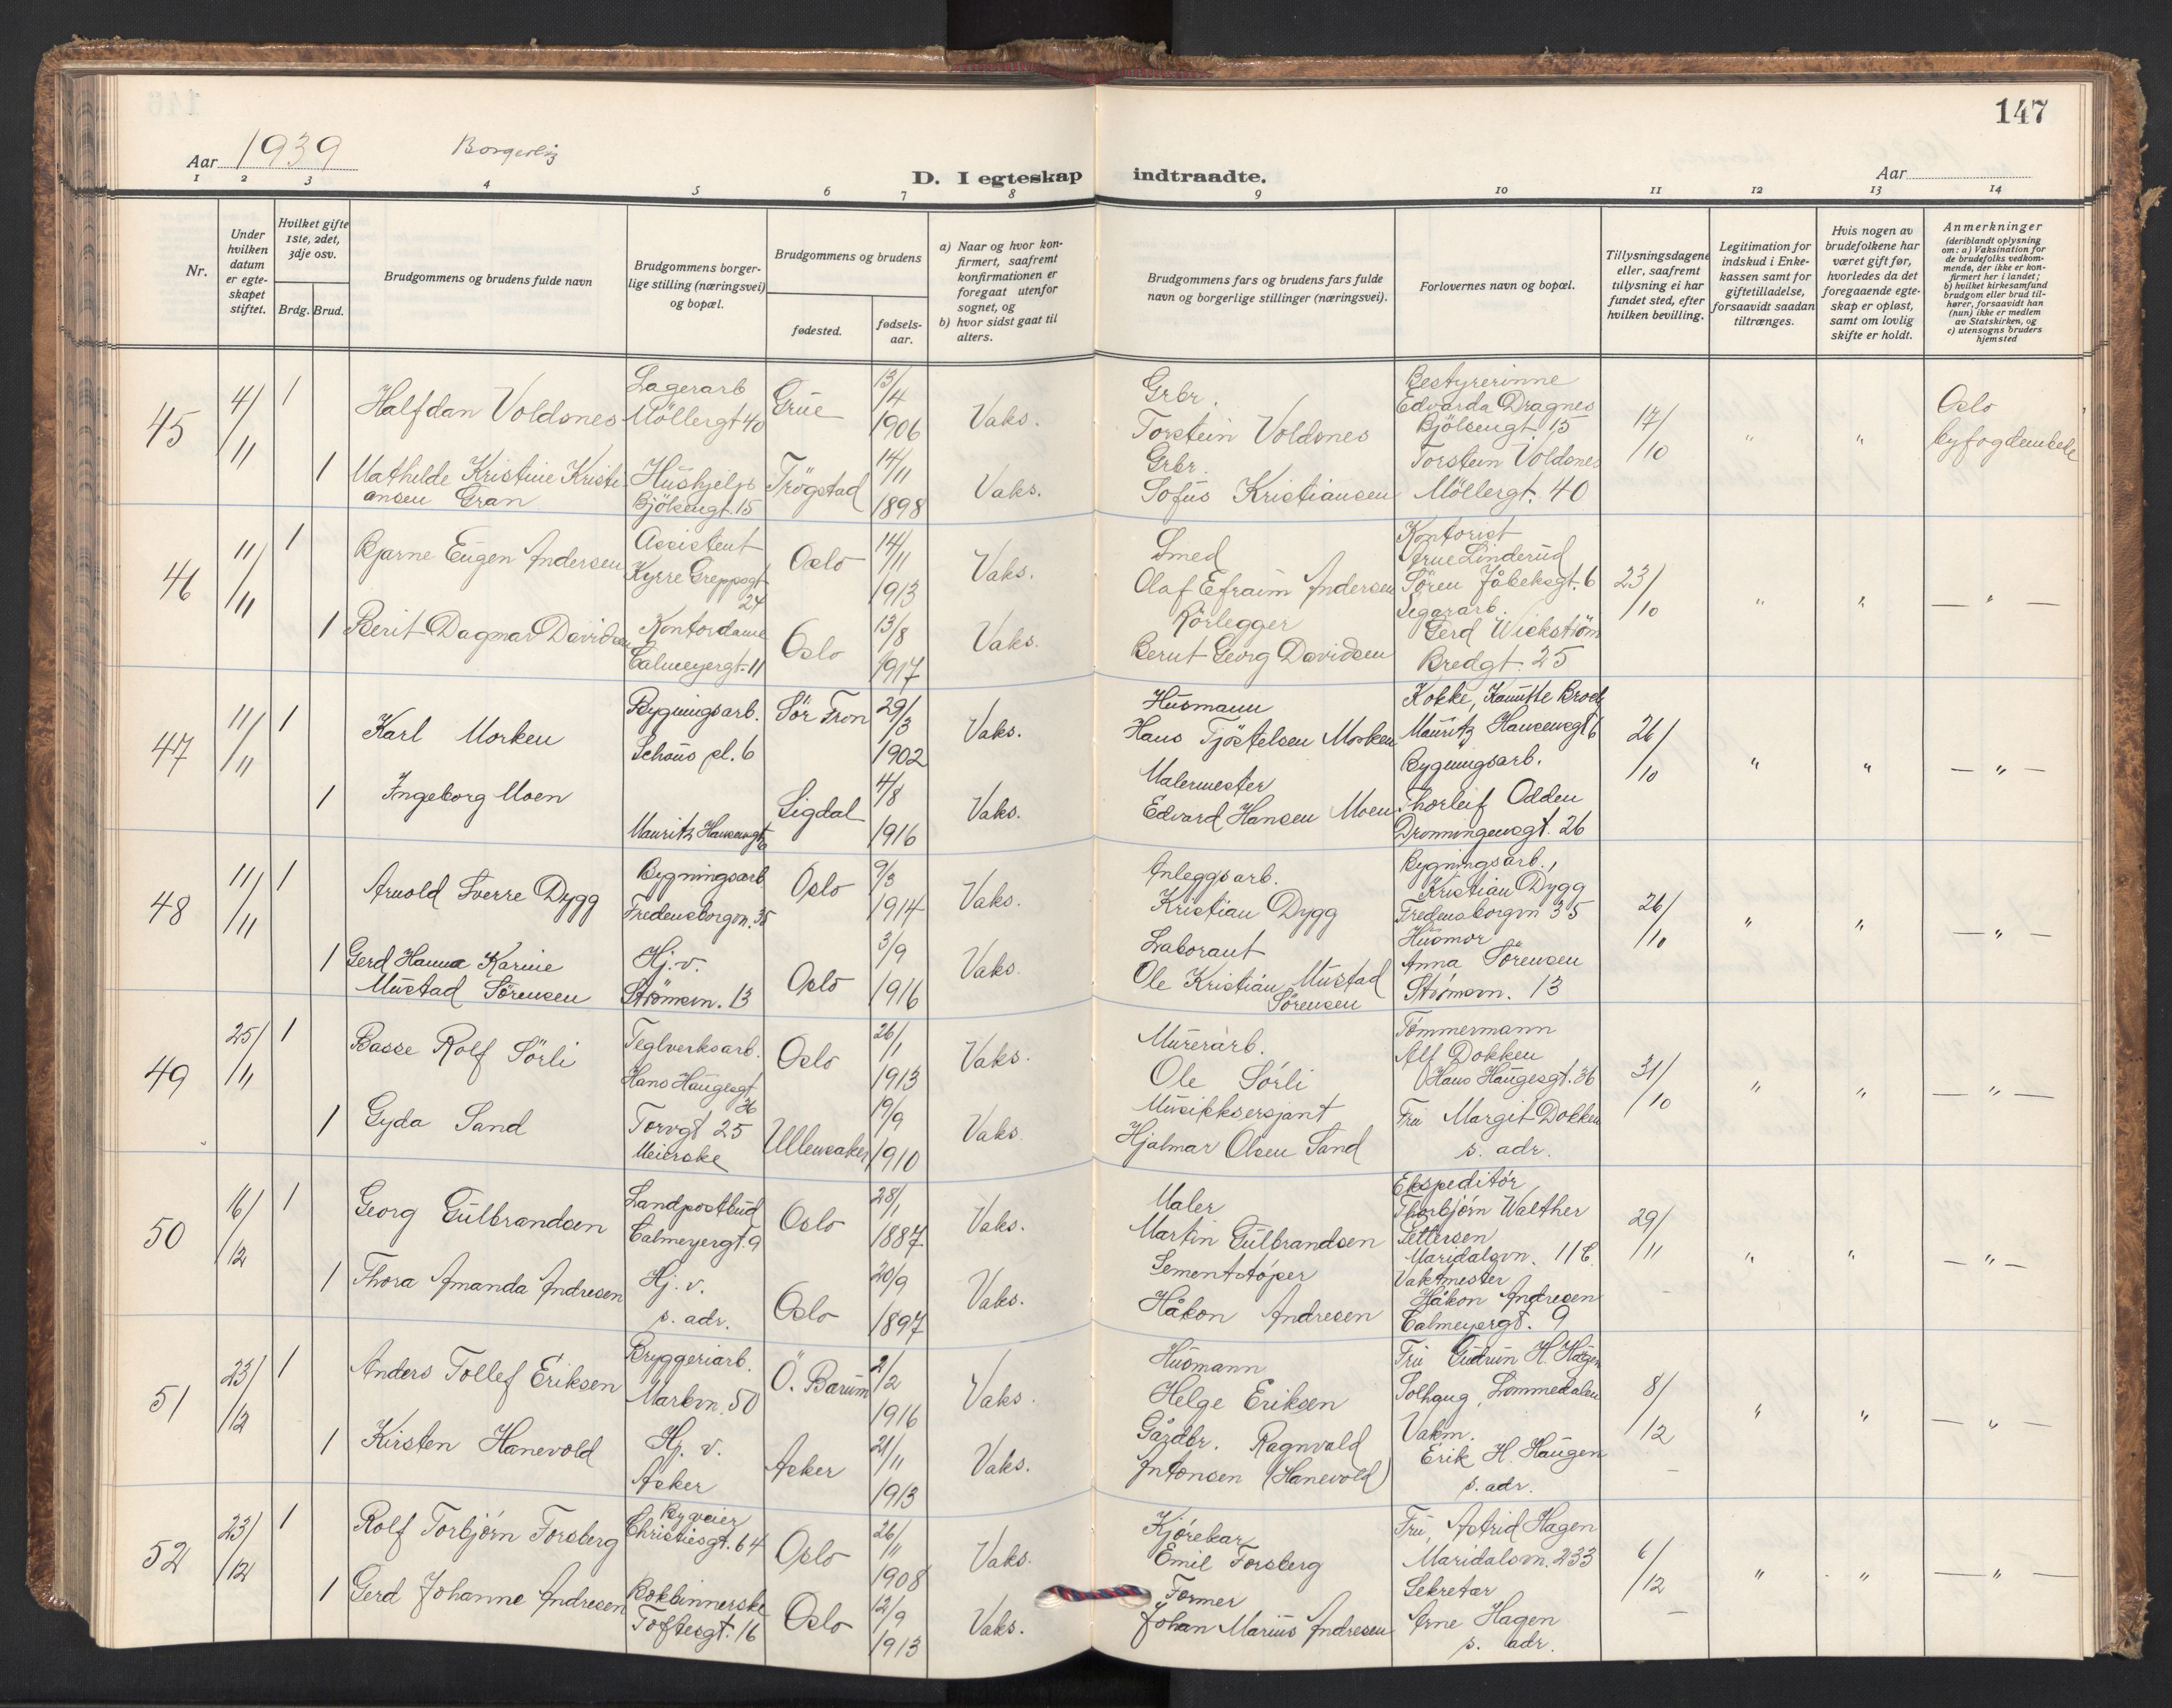 147
Aar 1939 Borgerlig
D. I egteskap indtraadte.
Aar
1 2 3 4 5 6 7 8 9 10 11 12 13 14
Nr.
Under hvilken datum er egte-skapet stiftet.
Hvilket gifte 1ste, 2det, 3dje osv.
Brdg. Brud.
Brudgommens og brudens fulde navn
Brudgommens borger-lige stilling (næringsvei) og bopæl.
Brudgommens og brudens
fødested.
fødsels-aar.
a) Naar og hvor kon-firmert, saafremt konfirmationen er foregaat utenfor sognet, og
b) hvor sidst gaat til alters.
Brudgommens fars og brudens fars fulde navn og borgerlige stillinger (næringsvei).
Forlovernes navn og bopæl.
Tillysningsdagene eller, saafremt tillysning ei har fundet sted, efter hvilken bevilling.
Legitimation for indskud i Enke-kassen samt for giftetilladelse, forsaavidt saadan tiltrænges.
Hvis nogen av brudefolkene har været gift før, hvorledes da det foregaaende egte-skap er opløst, samt om lovlig skifte er holdt.
Anmerkninger
(deriblandt oplysning om: a) Vaksination for de brudefolks vedkom-mende, der ikke er kon-firmert her i landet; b) hvilket kirkesamfund brudgom eller brud til-hører, forsaavidt han (hun) ikke er medlem av Statskirken, og c) utensogns bruders hjemsted
45 4/11 1 Halfdan Voldsnes Lagerarb Möllergt 40 Grue 13/4 1906 Vaks. Grbr. Torstein Voldsnes Bestyrerinne Edvarda Dragnes Bjölsengt 15 17/10 " " Oslo byfogdembede
1 Mathilde Kristine Kristiansen Gran Hushjelp Bjölsengt. 15 Trögstad 14/11 1898 Vaks. Grbr. Sofus Kristiansen Torstein Voldsnes Möllergt. 40
46 11/11 1 Bjarne Eugen Andersen Assistent Kyrre Greppsgt 24 Oslo 14/11 1913 Vaks. Smed Olaf Efraim Andersen Kontorist Arne Linderud Sören Jåbeksgt. 6 23/10 " " — " —
1 Berit Dagmar Davidsen Kontordame Calmeyergt. 11 Oslo 13/8 1917 Vaks. Rörlegger Bernt Georg Davidsen Segararb. Gerd Wickström Bredgt. 25
47 11/11 1 Karl Morken Bygningsarb. Schous pl. 6 Sör Fron 29/3 1902 Vaks. Husmann Hans Tjöstelsen Morken Kokke, Mauritz Hansensgt 6 26/10 " " — " —
1 Ingeborg Moen Mauritz Hansensgt 6 Sigdal 4/8 1916 Vaks. Malermester Edvard Hansen Moen Bygningsarb. Thorleif Odden Dronningensgt. 26
48 11/11 1 Arnold Sverre Dygg Bygningsarb Fredensborgvn. 35 Oslo 9/3 1914 Vaks. Anleggsarb. Kristian Dygg Bygningsarb., Kristian Dygg Fredensborgvn 35 26/10 " " — " —
1 Gerd Hanna Karine Mustad Sörensen Hj.v. Strömsvn. 13 Oslo 3/9 1916 Vaks. Laborant Ole Kristian Mustad Sörensen Husmor Anna Sörensen Strömsvn. 13
49 25/11 1 Basse Rolf Sörli Teglverksarb. Hans Haugesgt 36 Oslo 26/1 1913 Vaks. Murerarb. Ole Sörli Tömmermann Alf Dokken Hans Haugesgt. 36 31/10 " " — " —
1 Gyda Sand Torvgt 25 Meierske Ullensaker 19/9 1910 Vaks. Musikksersjant Hjalmar Olsen Sand Fru Margit Dokken s. adr.
50 16/12 1 Georg Gulbrandsen Landpostbud Calmeyergt. 9 Oslo 28/1 1887 Vaks. Maler Martin Gulbrandsen Ekspeditör Thorbjörn Walther Pettersen Maridalsvn. 11 C 29/11 " " — " —
1 Thora Amanda Andresen Hj. v. s. adr. Oslo 20/9 1897 Vaks. Sementstöper Håkon Andresen Vaktmester Håkon Andresen Calmeyergt. 9
51 23/12 1 Anders Tollef Eriksen Bryggeriarb. Markvn. 50 Ö. Bærum 2/2 1916 Vaks. Husmann Helge Eriksen Fru Gudrun H. Haugen Solhaug, Lommedalen 8/12 " " — " —
1 Kirsten Hanevold Hj. v. Asker Asker 21/11 1913 Vaks. Gårdbr. Ragnvald Antonsen (Hanevold) Vakm. Erik H. Haugen s. adr.
52 23/12 1 Rolf Torbjörn Forsberg Christiesgt. 64 Oslo 26/11 1908 Vaks. Kjörekar Emil Forsberg Fru, Astrid Hagen Maridalsvn. 233 6/12 " " — " —
1 Gerd Johanne Andresen Bokbinnerske Toftesgt. 16 Oslo 12/9 1913 Vaks. Former Johan Marius Andresen Sekretær Arne Hagen s. adr.